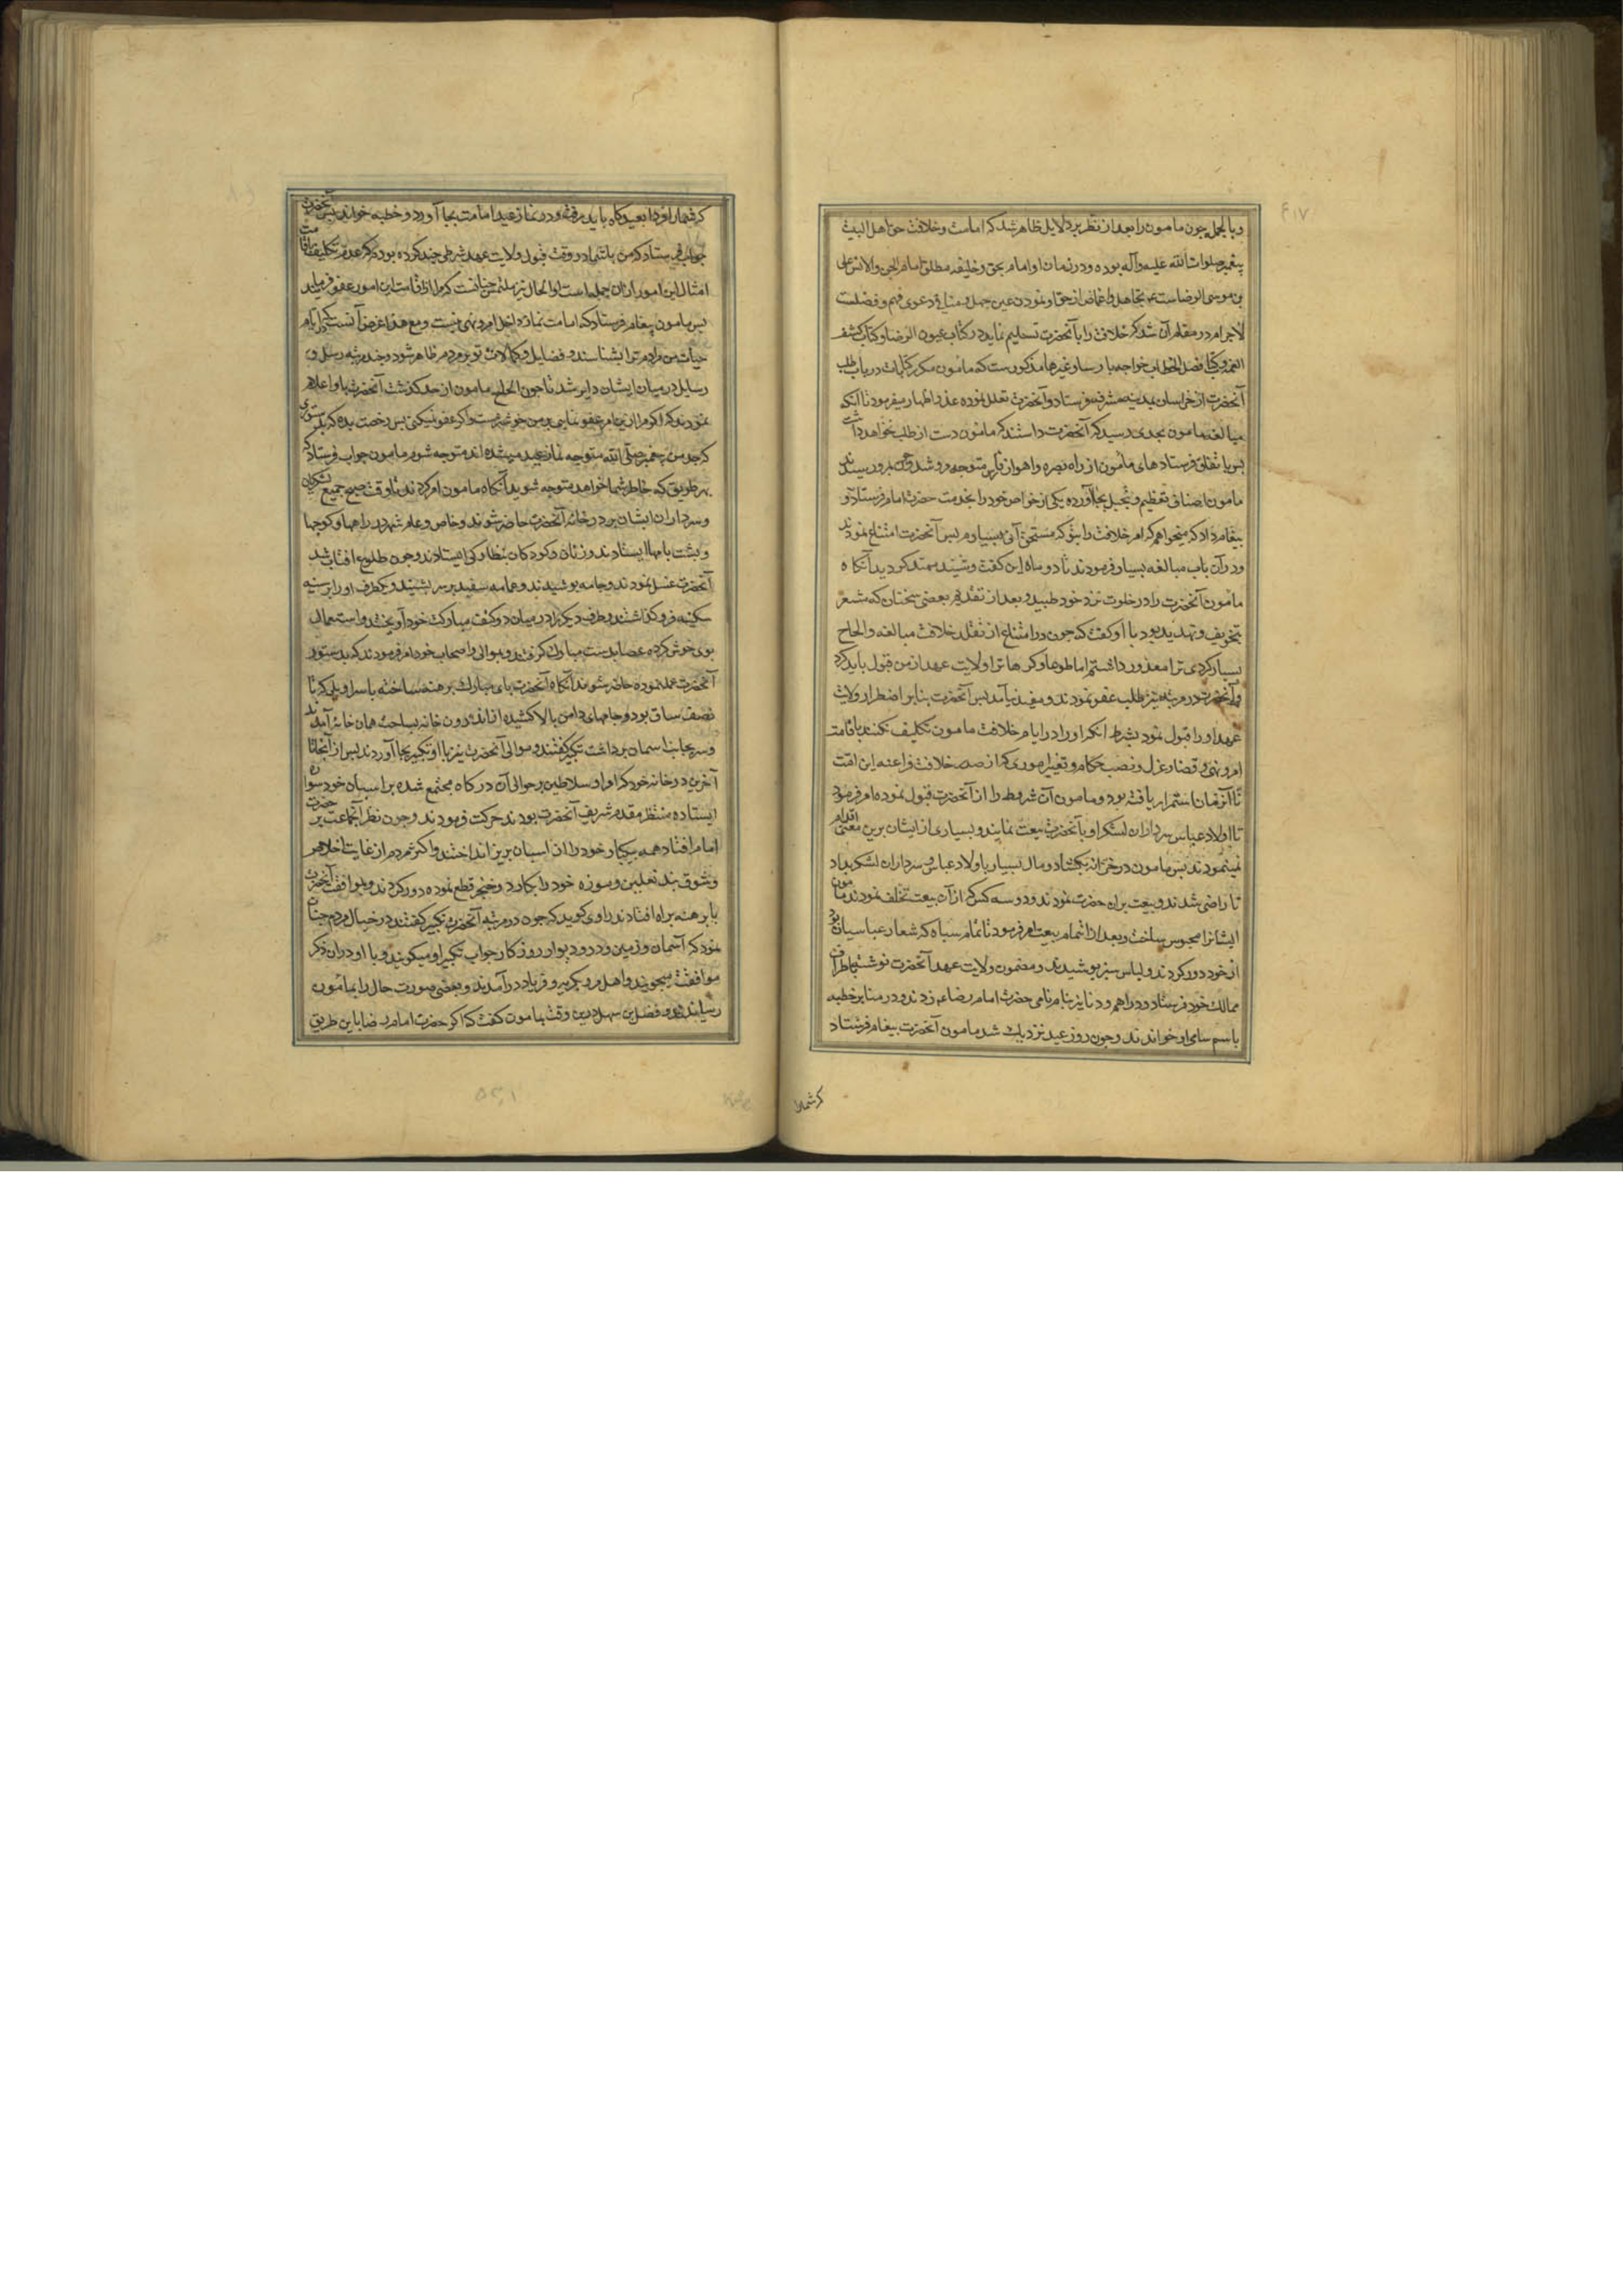 ۴۱۷
و بالجمله چون مامون را بعد از نظر بر دلایل ظاهر شد که امامت و خلافت حق اهل البیت
پیغمبر صلوات الله علیه و آله بوده و در زمان او امام بحق و خلیفه مطلق امام الجن و الانس علی
بن موسی الرضاست و تجاهل و اغماض از حق او نمودن عین جهل و منافی دعوی فهم و فضلست
لاجرم در مقام آن شد که خلافت را بآنحضرت تسلیم نماید در کتاب عیون الرضا و کتاب کشف
الغمه و کتاب فصل الخطاب خواجه پارسا و غیرها مذکورست که مامون مکرر کتابات در باب طلب
آنحضرت از خراسان بمدینه مشرفه فرستاد و آنحضرت تعلل نموده عذرها اظهار میفرمود تا آنکه
مبالغه مامون بحدی رسید که آنحضرت داشتند که مامون دست از طلب نخواهد داشت
پس باتفاق فرستادهای مامون از راه بصره و اهواز و فارس متوجه مرو شد و چون بمرو رسیدند
مامون اصناف تعظیم و تبجیل بجا آورده یکی از خواص خود را بخدمت حضرت امام فرستاد و
پیغام داد که میخواهم که امر خلافت را بتو که مستحق آنی بسپارم پس آنحضرت امتناع نمودند
و در آن باب مبالغه بسیار فرمودند تا دو ماه این کفت و شنید ممتد کردید آنکاه
مامون آنحضرت را در خلوت نزد خود طلبید و بعد از تقدیم بعضی سخنان که مشعر
بتخویف و تهدید بود با او کفت که چون در امتناع از تقلد خلافت مبالغه و الحاح
بسیار کردی ترا معذور داشتم اما طوعا و کرها ترا ولایت عهد از من قبول باید کرد
و آنحضرت در مرتبه نیز طلب عفو نمودند و مفید نیامد پس آنحضرت بنابر اضطرار ولایت
عهد او را قبول نمود بشرط انکه او را در ایام خلافت مامون تکلیف نکنند باقامت
امر و نهی و قضا و عزل و نصب حکام و تغییر اموری که از صدر خلافت فراعنه این امت
تا آنزمان استمرار یافته بود و مامون آن شروط را از آنحضرت قبول نموده امر فرمود
تا اولاد عباس و سرداران لشکر او با آنحضرت بیعت نمایند و بسیاری از ایشان برین معنی اقدام
نمینمودند پس مامون در خزانه بکشاد و مال بسیار باولاد عباس و سرداران لشکر بداد
تا راضی شدند و بیعت بران حضرت نمودند و دو سه کس که از آن بیعت تخلف نمودند مامون
ایشانرا محبوس ساخت و بعد از اتمام بیعت امر فرمود تا تمام سپاه که شعار عباسیان بود
از خود دور کردند و لباس سبز پوشیدند و مضمون ولایت عهد آنحضرت نوشته باطراف
ممالک خود فرستاد و دراهم و دنانیر بنام نامی حضرت امام رضا عم زدند و در منابر خطبه
باسم سامی او خواندند و چون روز عید نزدیک شد مامون آنحضرت پیغام فرستاد
که شمارا
که شمارا فردا بعیدکاه باید رفت و در نماز عید امامت بجا آورد و خطبه خواند پس آنحضرت
جواب فرستاد که من با شما در وقت قبول ولایت عهد شرطی چند کرده بودم که عدم تکلیف باقامت
امثال این امور از آن جمله است و الحال نیز ملتمس چنانست که مرا از اقامت این امور عفو فرمایند
پس مامون پیغام فرستاد که امامت نماز داخل امر و نهی نیست و مع هذا غرض آنست که در ایام
حیات من مردم ترا بشناسند و فضایل و کمالات تو بر مردم ظاهر شود و چند مرتبه رسل و
رسایل در میان ایشان دایر شد تا چون الحاح مامون از حد کذشت آنحضرت باو اعلام
نمودند که اکر مرا ازین امر عفو نمایی بر من خوشترست و اکر عفو نمیکنی پس رخصت بده که بدستوری
که جد من پیغمبر صلی الله متوجه نماز عید میشده اند متوجه شوم مامون جواب فرستاد که
بهر طریق که خاطر شما خواهد متوجه شوید آنکاه مامون امر کردند تا وقت صبح جمیع لشکریان
و سرداران ایشان بر در خانه آنحضرت حاضر شوند و خاص و عام شهر در راهها و کوچها
و پشت بامها ایستادند و زنان و کودکان بنظارکی ایستادند و چون طلوع افتاب شد
آنحضرت غسل نمودند و جامه پوشیدند و عمامه سفید بر سر بستند و یکطرف او را بر سینه
سکینه فرو کذاشتند و طرف دیکر را در میان دو کتف مبارک خود آویختند و استعمال
بوی خوش کرده عصا بدست مبارک کرفتند و موالی و اصحاب خود امر فرمودند که بدستور
آنحضرت عمل نموده حاضر شوند آنکاه آنحضرت پای مبارک برهنه ساخته با سراویلی که تا
نصف ساق بود و جامهای دامن بالا کشیده از اندرون خانه بساحت همان خانه آمدند
و سر بجانب اسمان برداشت تکبیر کفتند و موالی آنحضرت نیز با او تکبیر بجا آوردند پس از آنجا تا
آخرین در خانه خود که امرا و سلاطین بر حوالی آن درکاه مجتمع شده بر اسبان خود سواره
ایستاده منتظر مقدم شریف آنحضرت بودند حرکت فرمودند و چون نظر آنجماعت بر حضرت
امام افتاد همه یکبار خود را از اسبان بزیر انداختند و اکثر مردم از غایت اخلاص
و شوق بند نعلین و موزه خود را بکارد و خنجر قطع نموده دور کردند و بموافقت آنحضرت
پا برهنه براه افتادند راوی کوید که چون در مرتبه آنحضرت تکبیر کفتند در خیال مردم چنان
نمود که آسمان و زمین و در و دیوار روزکار جواب تکبیر او میکویند و با او در آن ذکر
موافقت میجویند و اهل مرو بکریه و فریاد درآمدند و بعضی صورت حال را بمامون
رسانیدند و فضل بن سهل درین وقت بمامون کفت که اکر حضرت امام رضا باین طریق